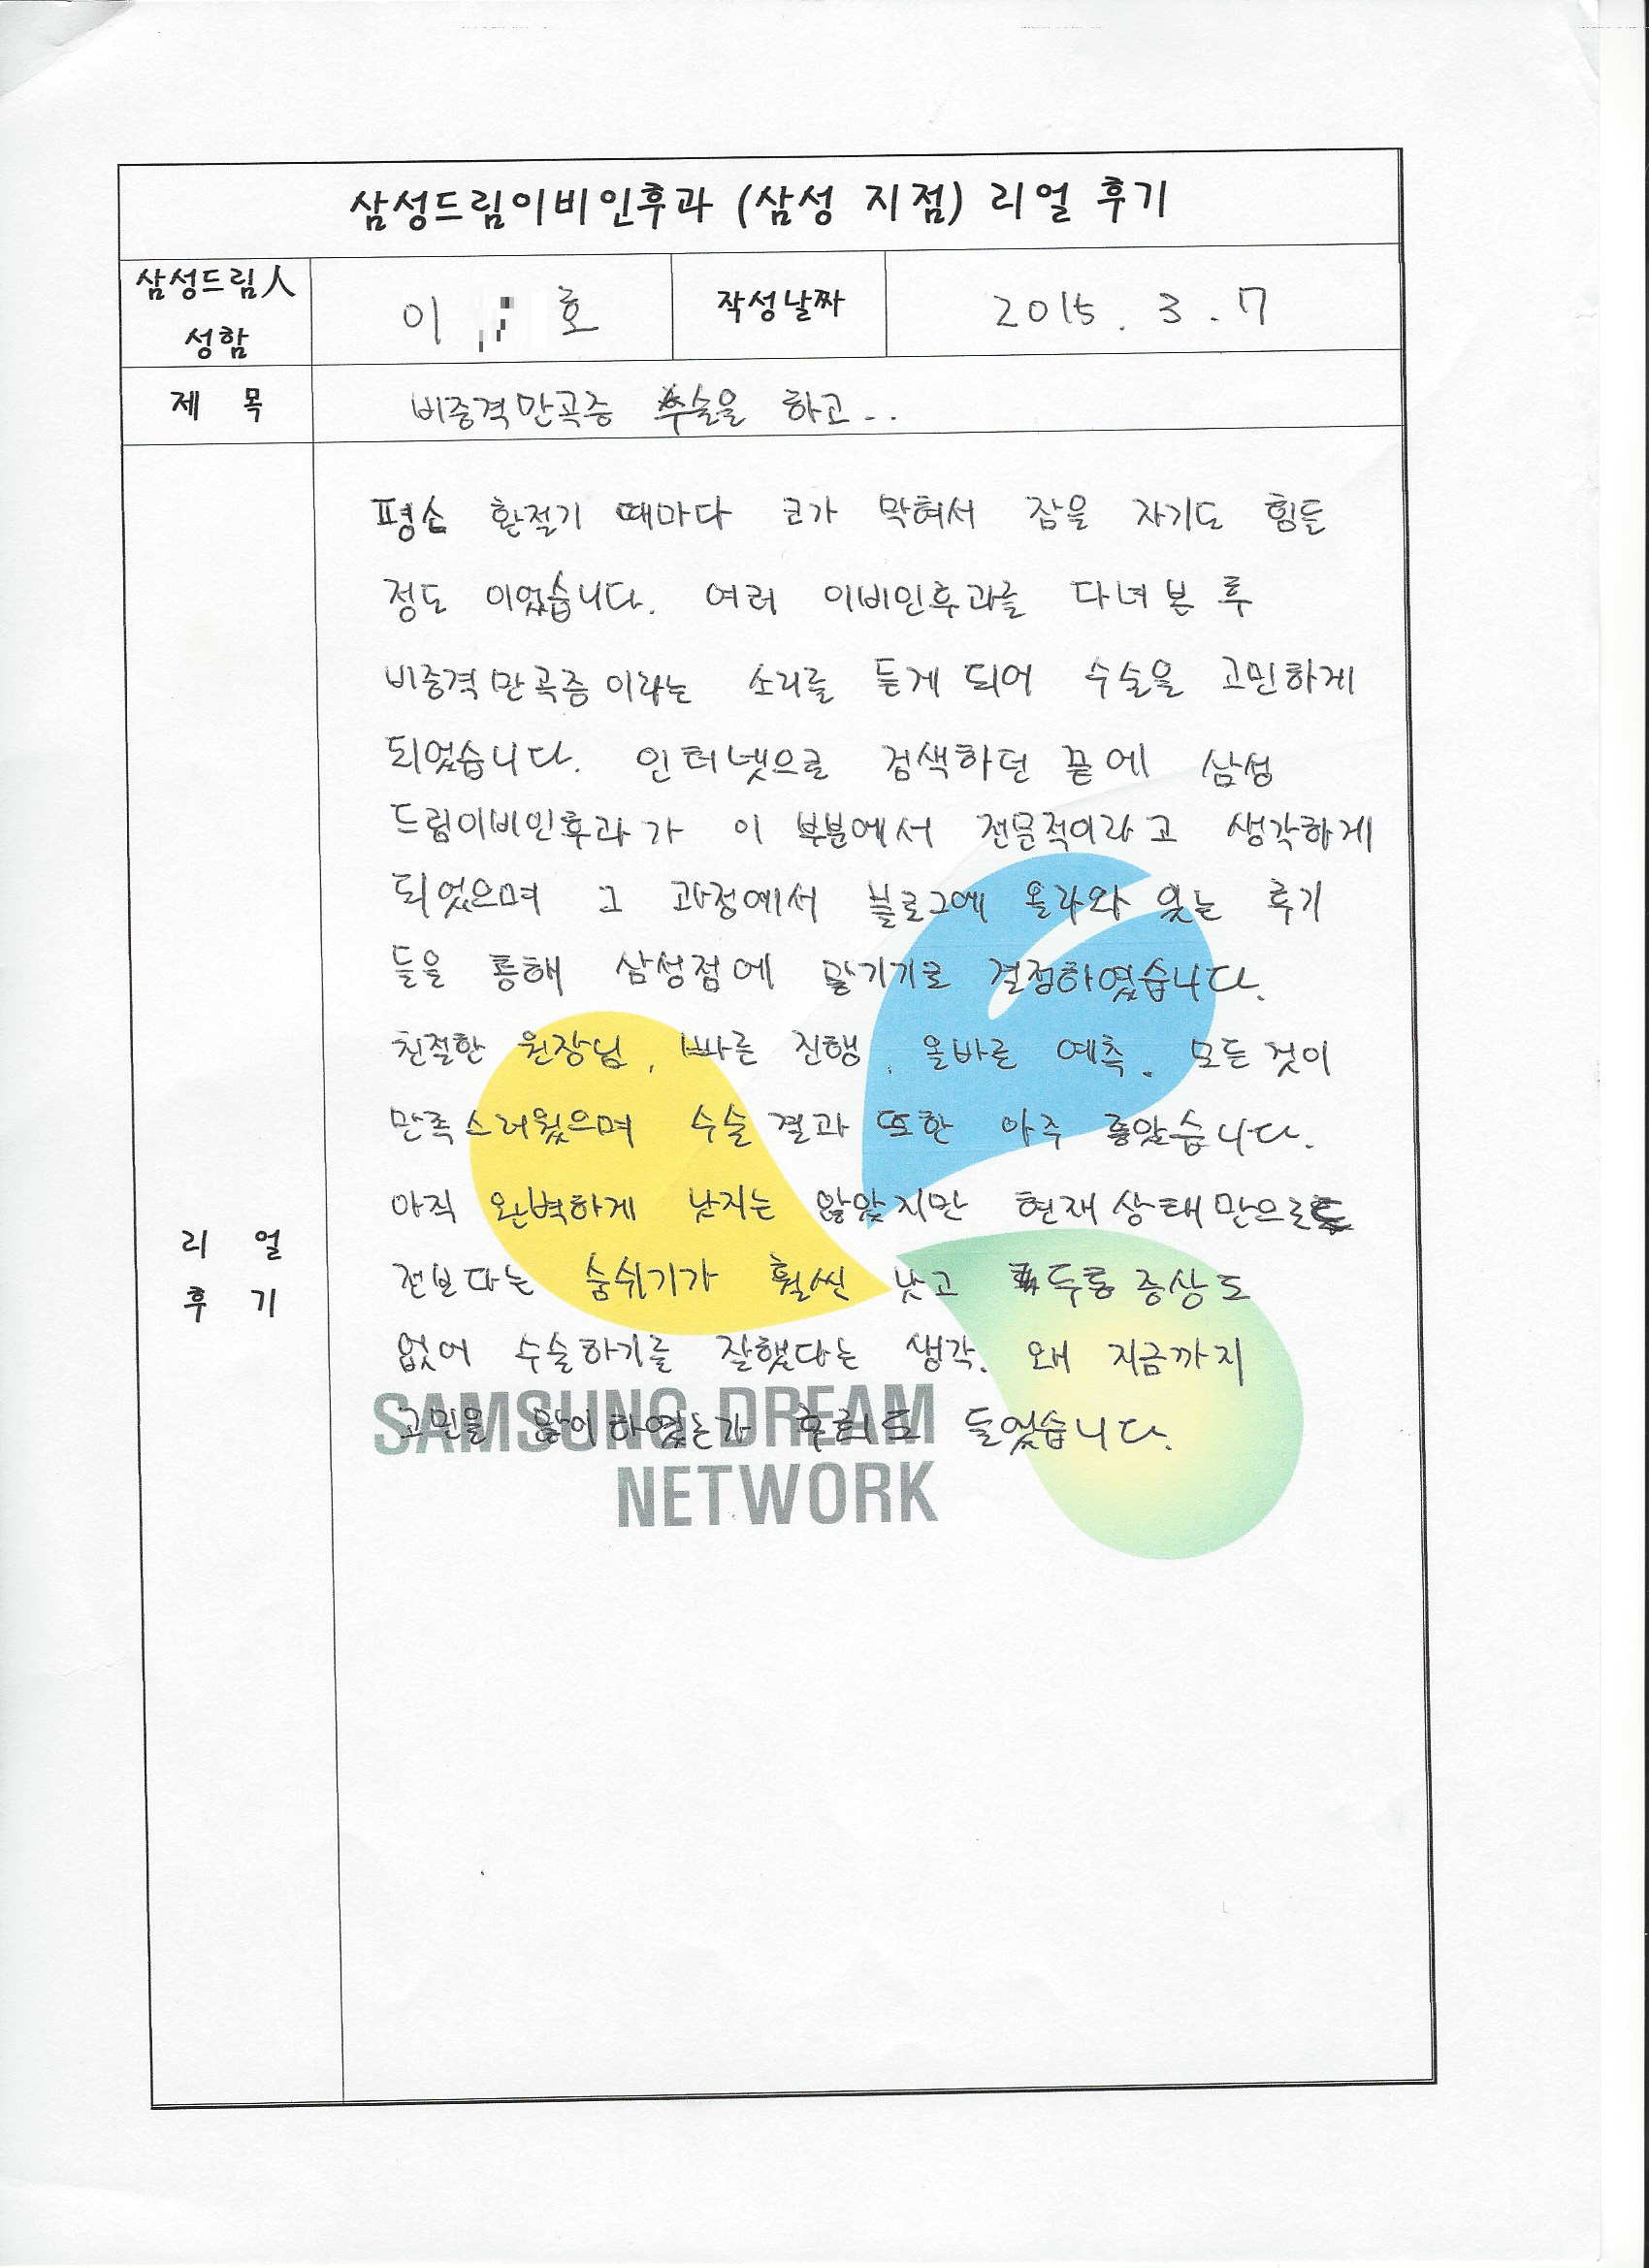 삼성드림이비인후과 (삼성 지점) 리얼 후기
삼성드림人
성함
이 호
작성날짜
2015. 3. 7
제 목
비중격만곡증 수술을 하고..
리 얼
후 기
평소 환절기 때마다 코가 막혀서 잠을 자기도 힘든
정도 이었습니다. 여러 이비인후과를 다녀본 후
비중격만곡증이라는 소리를 듣게 되어 수술을 고민하게
되었습니다. 인터넷으로 검색하던 끝에 삼성
드림이비인후과가 이 부분에서 전문적이라고 생각하게
되었으며 그 과정에서 블로그에 올라와 있는 후기
들을 통해 삼성점에 맡기기로 결정하였습니다.
친절한 원장님, 빠른 진행, 올바른 예측. 모든 것이
만족스러웠으며 수술 결과 또한 아주 좋았습니다.
아직 완벽하게 낫지는 않았지만 현재 상태만으로도
전보다는 숨쉬기가 훨씬 낫고 두통 증상도
없어 수술하기를 잘했다는 생각. 왜 지금까지
고민을 많이 하였는가 후회도 들었습니다.
SAMSUNG DREAM
NETWORK